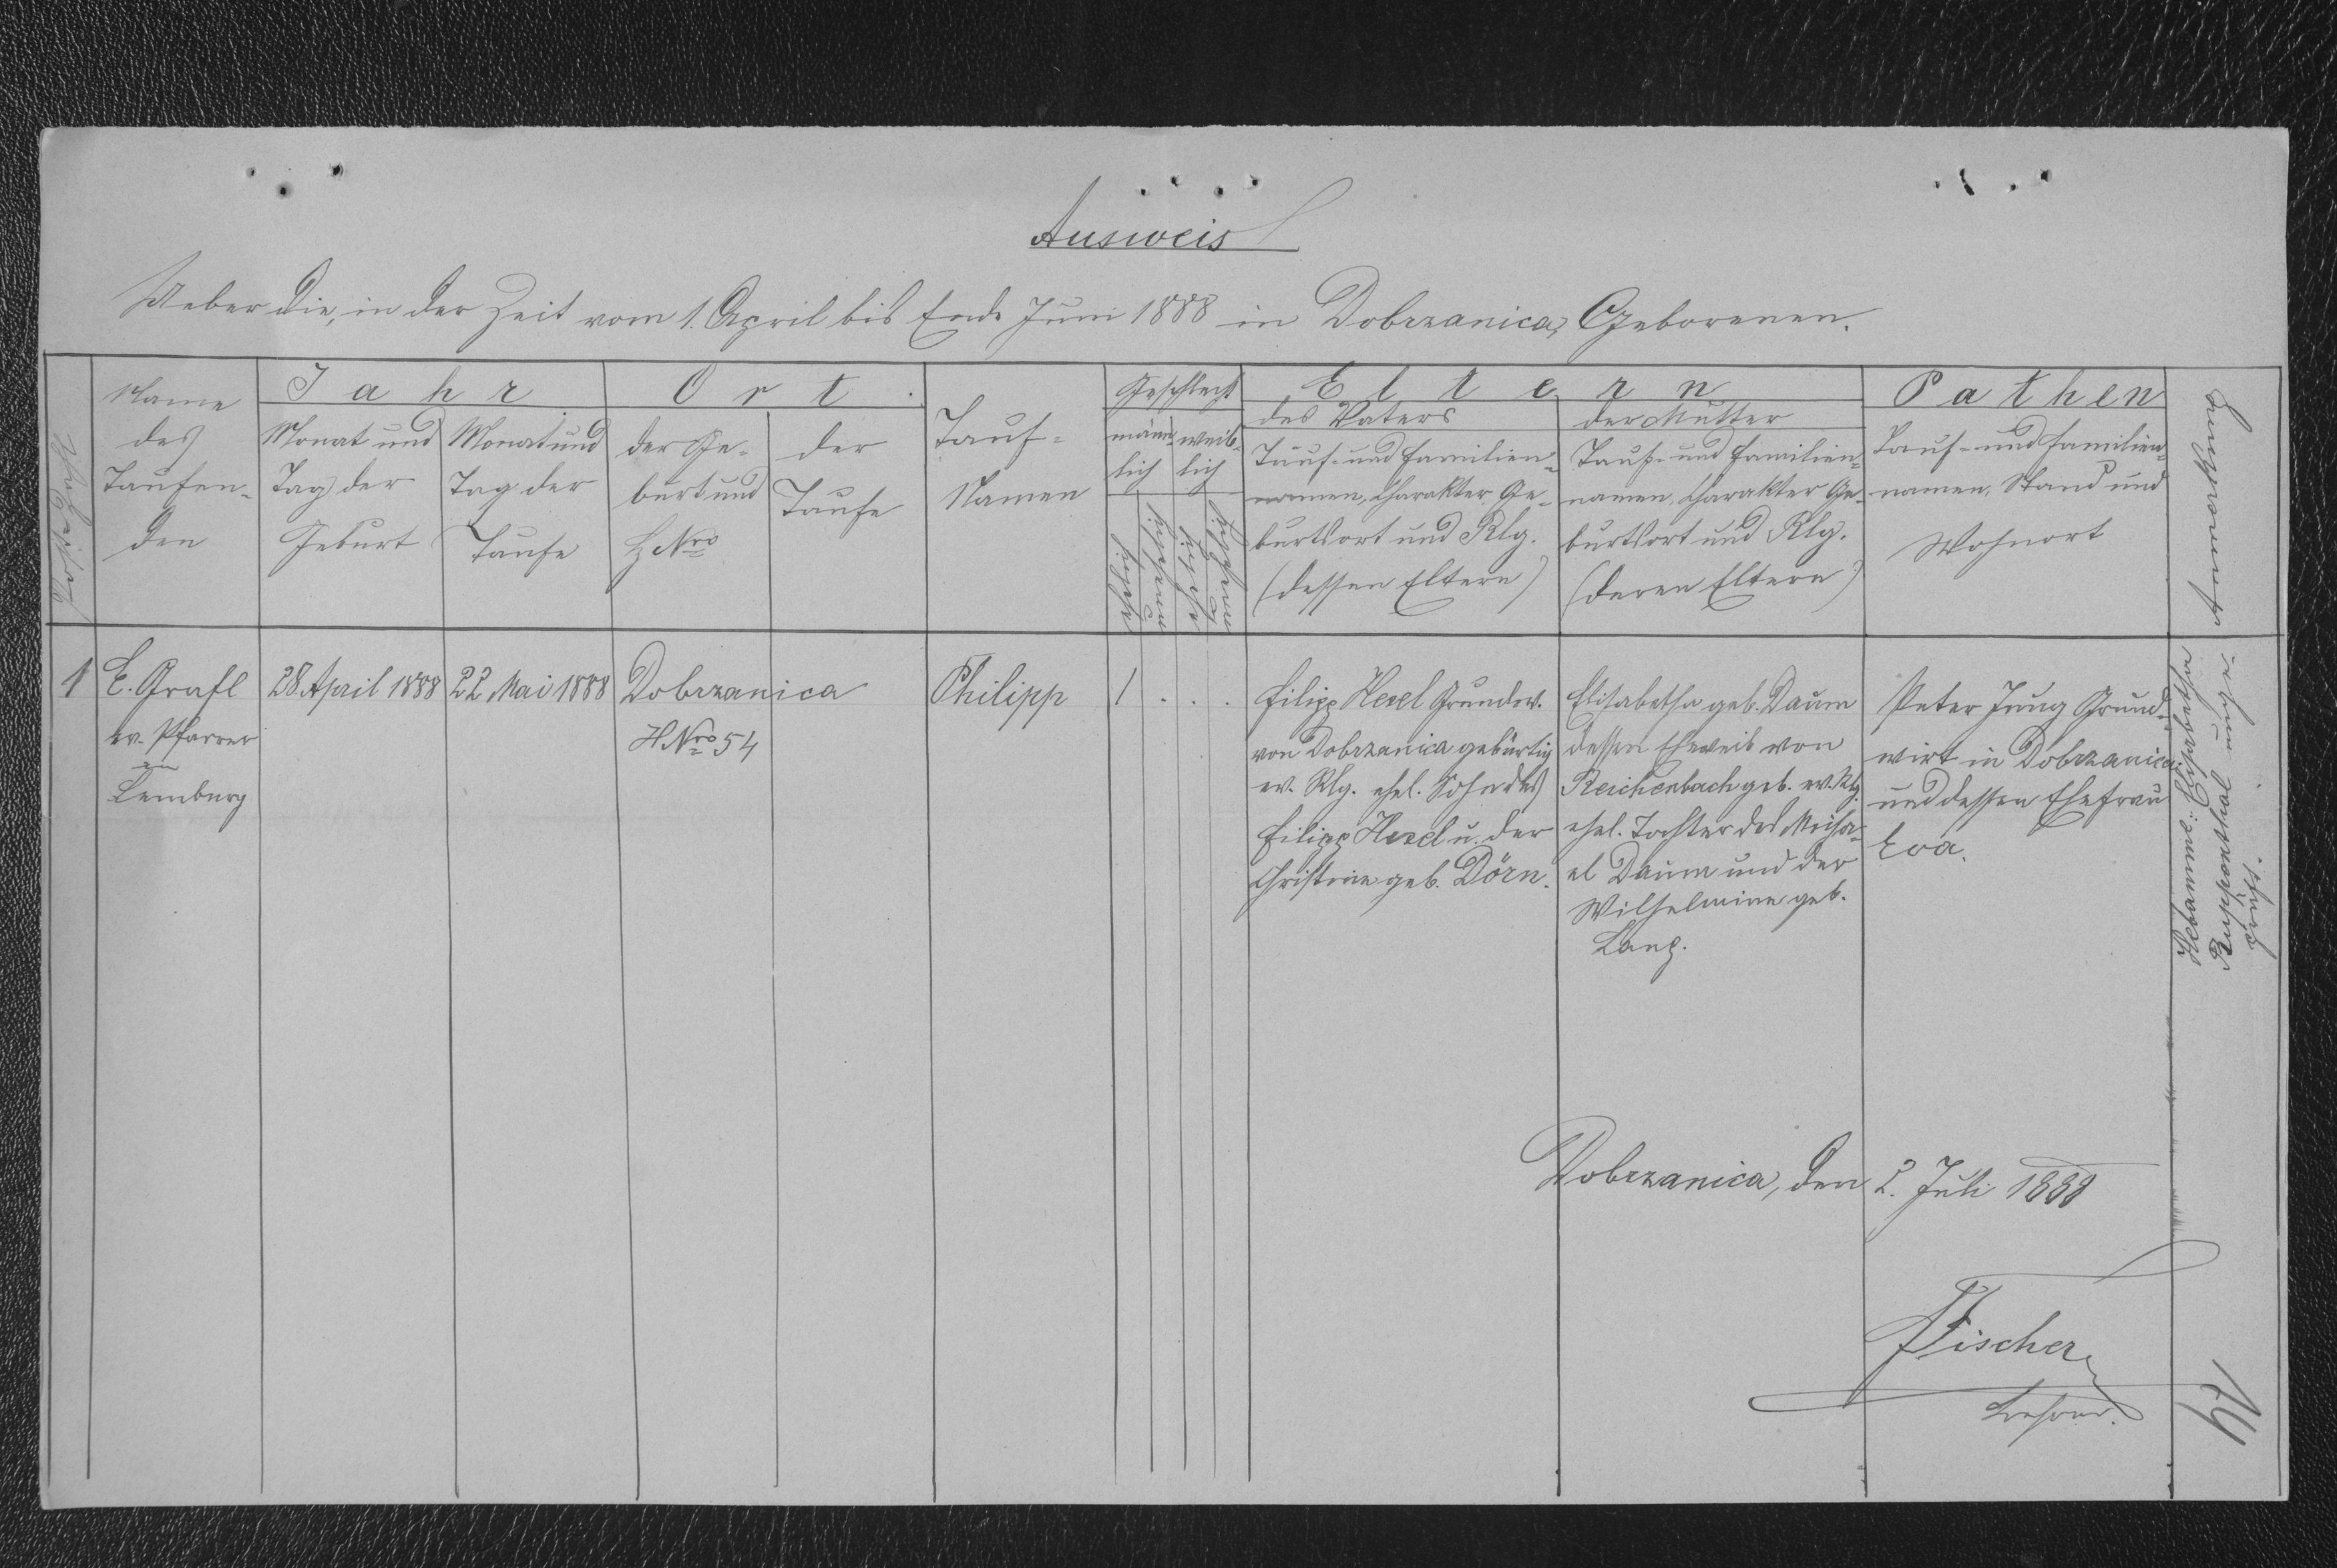 Ausweis
Ueber die, in der Zeit vom 1. April bis Ende Juni 1888 in Dobrzanica, Geborenen.
Name
des
Taufen-
den
Jahr
Monat und
Tag der
Geburt
Monat und
Tag der
Taufe
Ort
der Ge-
burt und
H Nro
der
Taufe
Tauf-
Namen
Geschlecht
männ-
lich
weib-
lich
Eltern
des Vaters
Tauf- und Familien-
namen, Charakter, Ge-
burtsort und Rlg.
(dessen Eltern)
der Mutter
Tauf- und Familien-
namen, Charakter Ge-
burtsort und Rlg.
(deren Eltern)
Pathen
Tauf- und Familien-
namen, Stand und
Wohnort
Anmerkung
1
E. Grafl
ev. Pfarrer
in
Lemburg
28. April 1888
22 Mai 1888
Dobrzanica
H Nro 54
Philipp
1 . . .
Filipp Hexel Grundw.
von Dobrzanica gebürtig
ev. Rlg. ehel. Sohn des
Filipp Hexel u. der
Christine geb. Dörn.
Elisabetha geb. Daum
dessen Eheweib von
Reichenbach geb. ev. Rlg.
ehel. Tochter des Micha-
el Daum und der
Wilhelmine geb.
Lang.
Peter Jung Grund-
wirt in Dobrzanica
und dessen Ehefrau
Eva.
Hebamme: Elisabetha
Ruppenthal unge-
prüft.
Dobrzanica, den 2. Juli 1888
Fischer
Lehrer.